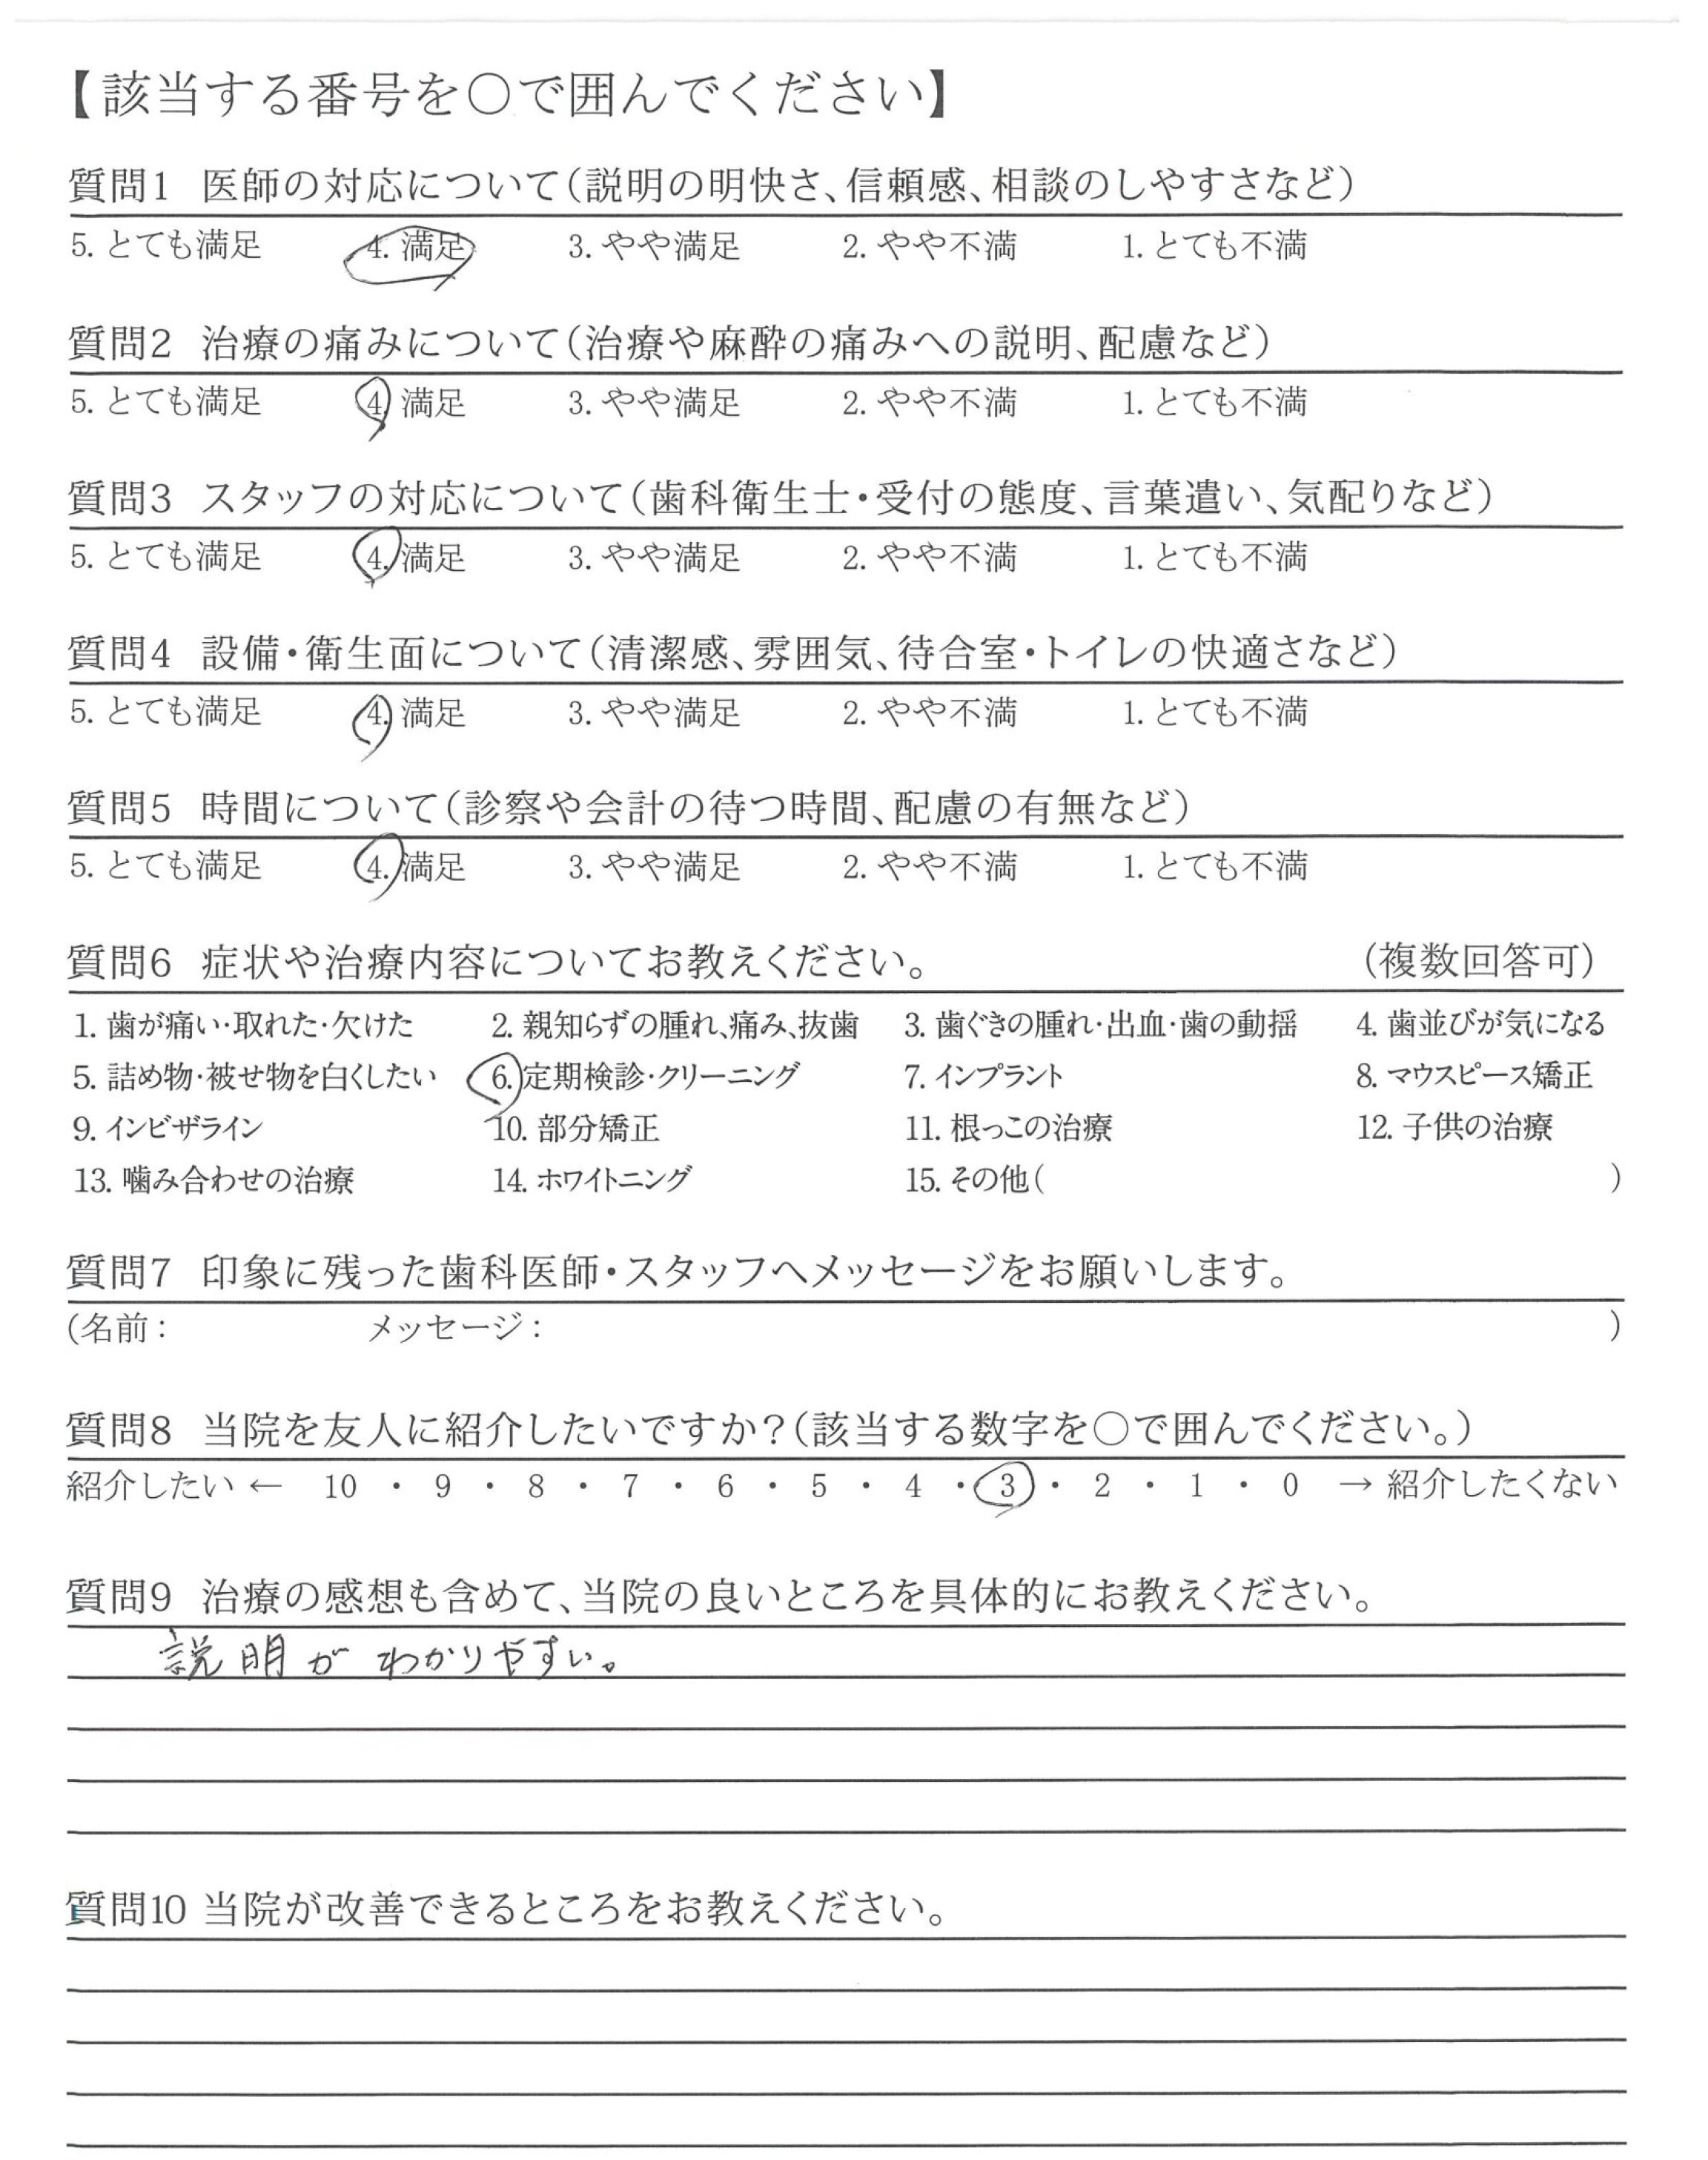 【該当する番号を〇で囲んでください】
質問1 医師の対応について（説明の明快さ、信頼感、相談のしやすさなど）
5. とても満足 4. 満足 3. やや満足 2. やや不満 1. とても不満
質問2 治療の痛みについて（治療や麻酔の痛みへの説明、配慮など）
5. とても満足 4. 満足 3. やや満足 2. やや不満 1. とても不満
質問3 スタッフの対応について（歯科衛生士・受付の態度、言葉遣い、気配りなど）
5. とても満足 4. 満足 3. やや満足 2. やや不満 1. とても不満
質問4 設備・衛生面について（清潔感、雰囲気、待合室・トイレの快適さなど）
5. とても満足 4. 満足 3. やや満足 2. やや不満 1. とても不満
質問5 時間について（診察や会計の待つ時間、配慮の有無など）
5. とても満足 4. 満足 3. やや満足 2. やや不満 1. とても不満
質問6 症状や治療内容についてお教えください。 （複数回答可）
1. 歯が痛い・取れた・欠けた 2. 親知らずの腫れ、痛み、抜歯 3. 歯ぐきの腫れ・出血・歯の動揺 4. 歯並びが気になる
5. 詰め物・被せ物を白くしたい 6. 定期検診・クリーニング 7. インプラント 8. マウスピース矯正
9. インビザライン 10. 部分矯正 11. 根っこの治療 12. 子供の治療
13. 噛み合わせの治療 14. ホワイトニング 15. その他（ ）
質問7 印象に残った歯科医師・スタッフへメッセージをお願いします。
（名前： メッセージ： ）
質問8 当院を友人に紹介したいですか？（該当する数字を〇で囲んでください。）
紹介したい ← 10 ・ 9 ・ 8 ・ 7 ・ 6 ・ 5 ・ 4 ・ 3 ・ 2 ・ 1 ・ 0 → 紹介したくない
質問9 治療の感想も含めて、当院の良いところを具体的にお教えください。
説明が わかりやすい。
質問10 当院が改善できるところをお教えください。